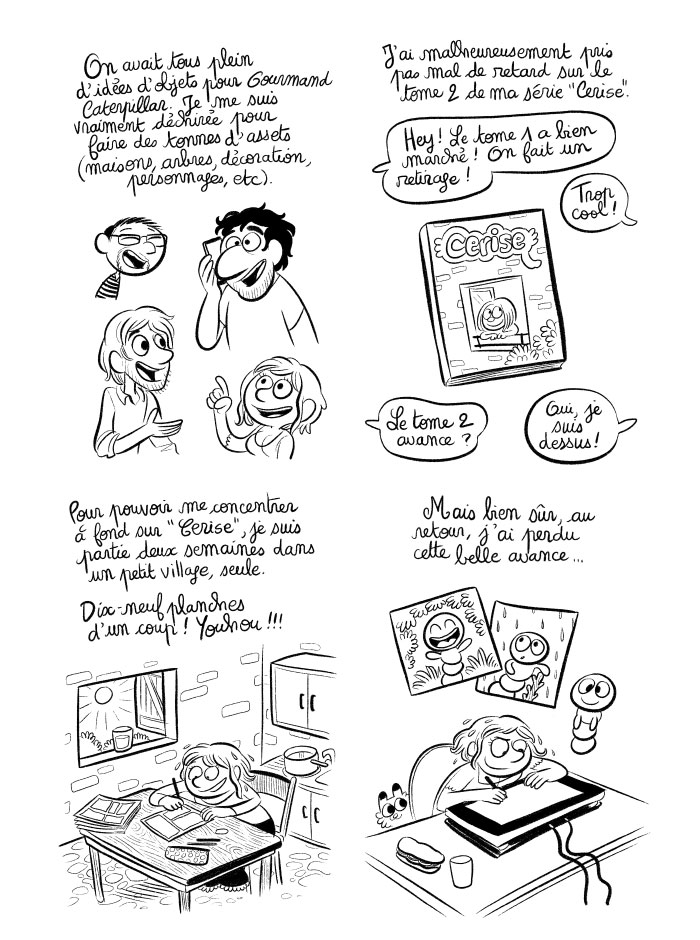 On avait tous plein
d'idées d'objets pour Gourmand
Caterpillar. Je me suis
vraiment déchirée pour
faire des tonnes d'assets
(maisons, arbres, décoration,
personnages, etc).
J'ai malheureusement pris
pas mal de retard sur le
tome 2 de ma série "Cerise".
Hey! Le tome 1 a bien
marché! On fait un
retirage!
Trop
cool!
Cerise
Le tome 2
avance?
Oui, je
suis
dessus!
Pour pouvoir me concentrer
à fond sur "Cerise", je suis
partie deux semaines dans
un petit village, seule.
Dix-neuf planches
d'un coup! Youhou!!!
Mais bien sûr, au
retour, j'ai perdu
cette belle avance...